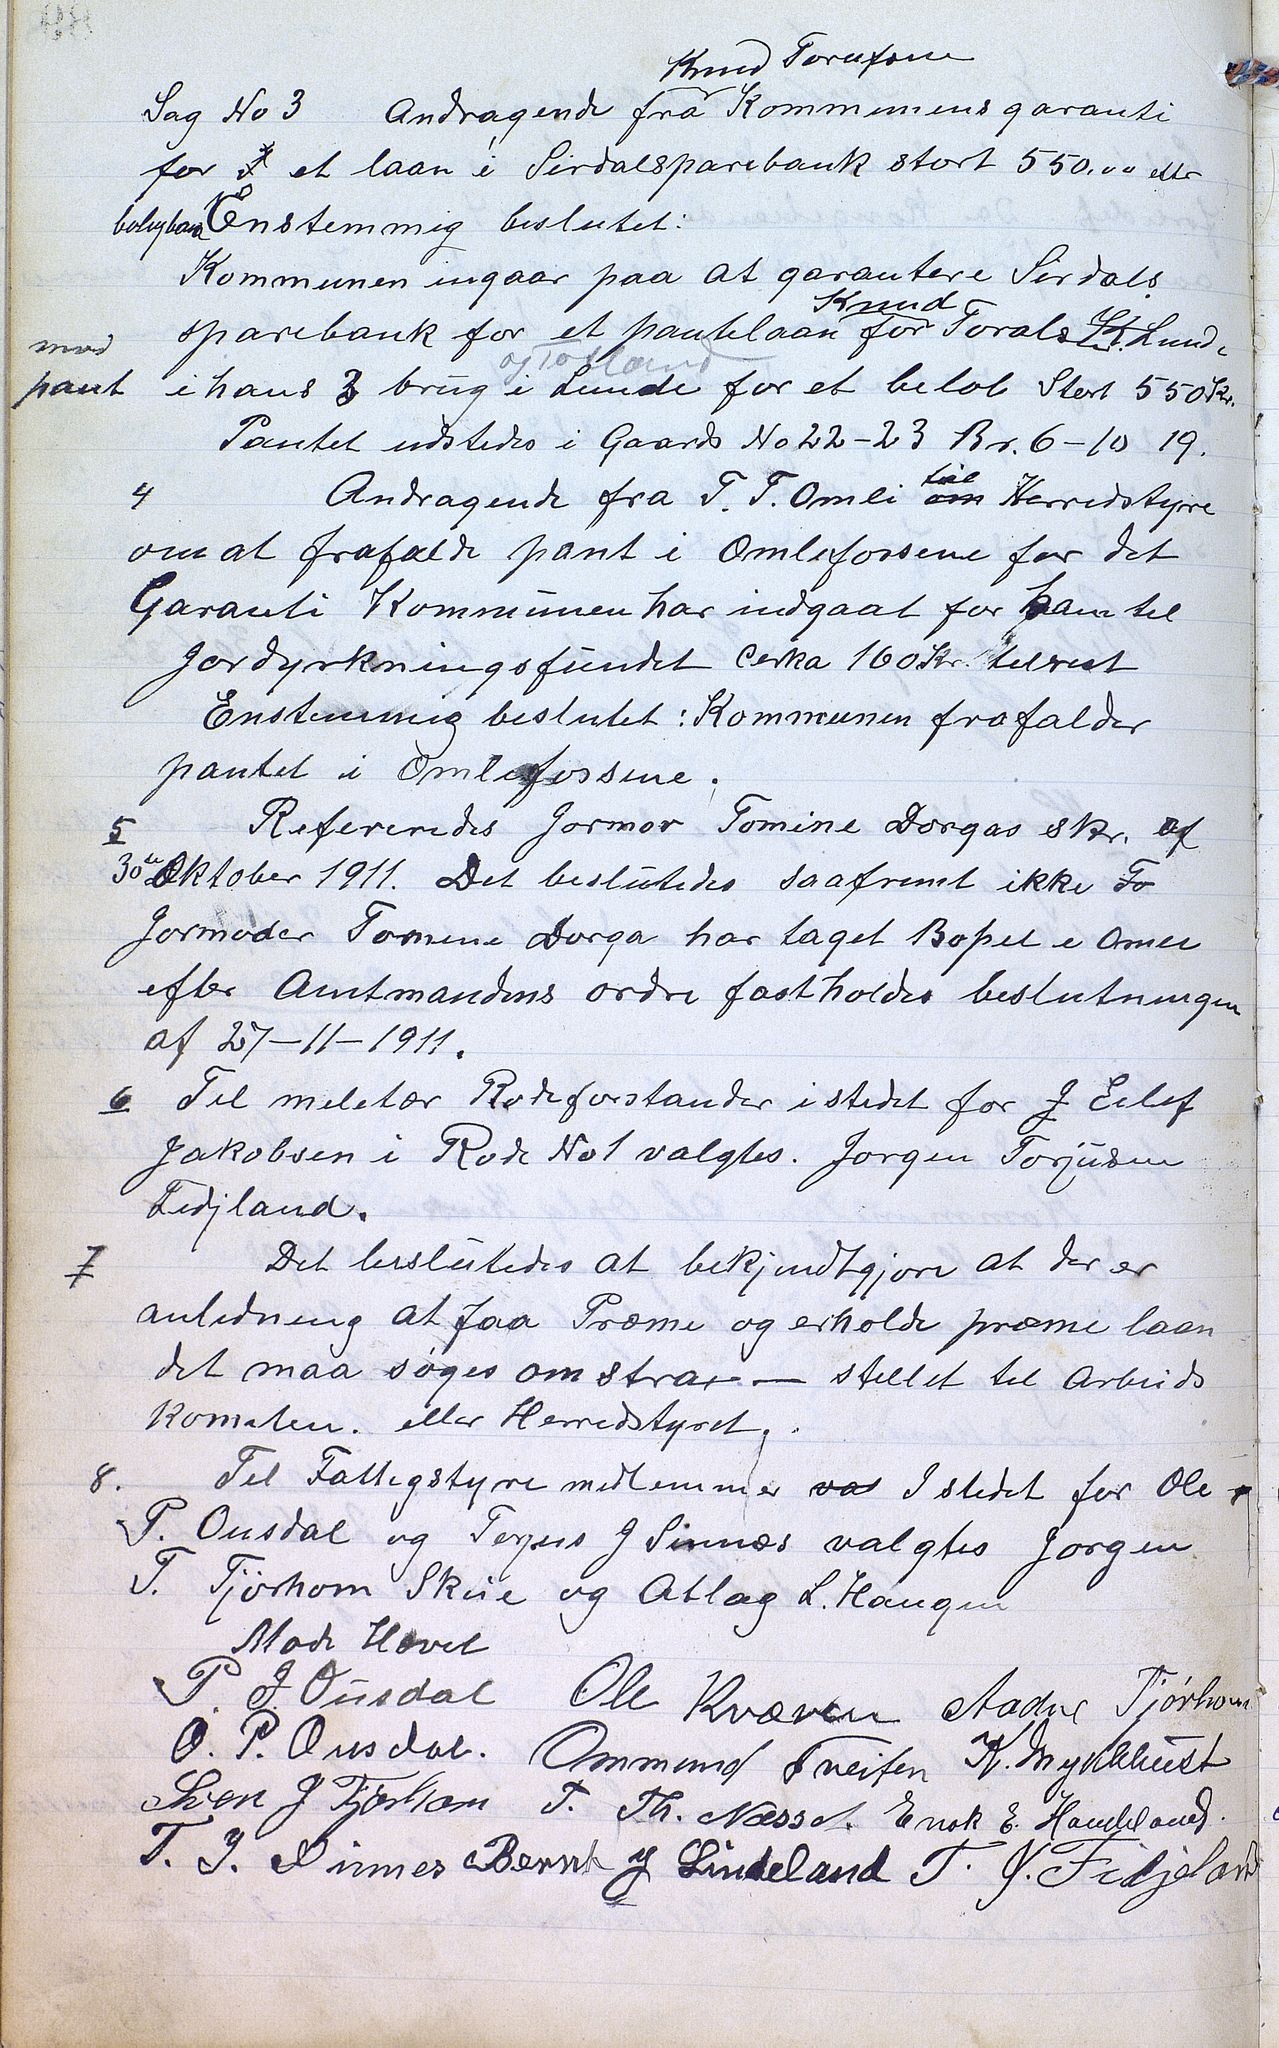 Knud Torufsen
Sag No 3 Andragende fra Kommunens garanti
for et laan i Sirdalsparebank stort 550,00 efter
Enstemmig beslutet:
Kommunen ingaar paa at garantere Sirdals
sparebank for et pantelaan for Knud Torals Lunde
mod pant
og Tofland
i hans 3 brug i Lunde for et beløb Stort 550 Kr.
Pantet udstedes i Gaards No 22-23 Br. 6-10 19.
4 Andragende fra T. T. Omli til Herredstyre
om at frafalde pant i Omlefossene for det
Garanti Kommunen har indgaat for ham til
Jordyrkningsfundet cirka 160 Kr. tilrest
Enstemmig beslutet: Kommunen frafalder
pantet i Omlefossene.
5 Refereredes Jormor Tomine Dorgas skr. af
30te Oktober 1911. Det beslutedes saafremt ikke To
Jormoder Tomene Dorga har taget Bopel i Omli
efter Amtmandens ordre fastholdes beslutningen
af 27-11-1911.
6 Til meletær Rodeforstander istedet for J Eilef
Jakobsen i Rode No 1 valgtes. Jorgen Torjusen
Fidjland.
7 Det beslutedes at bekjendtgjøre at der er
anledning at faa Præme og erholde præme laan
det maa søges om strax — stillet til Arbeids
komiteen. eller Herredstyret.
8. Til Fattigstyre medlemmer var I stedet for Ole
P. Ousdal og Terjus J Sinnæs valgtes Jorgen
T. Tjørhom Skue og Atlag L. Haugen
Møde Hævet
P. J Ousdal Ole Kvæven Aadne Tjørhom
O. P. Ousdal. Ommund Sveifen K. Mykkhust
Sven J Tjørhom T. Th. Næsset. Enok E. Haugland.
T. J. Sinnes Bernt J Lindeland T. J. Fidjeland